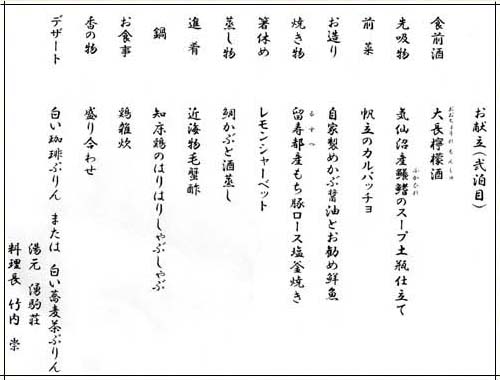 お献立(弐泊目)
食前酒 大長檸檬酒
おおちょうれもんしゅ
先吸物 気仙沼産鱶鰭のスープ土瓶仕立て
ふかひれ
前菜 帆立のカルパッチョ
お造り 自家製めかぶ醤油とお勧め鮮魚
焼き物 留寿都産もち豚ロース塩釜焼き
るすつ
箸休め レモンシャーベット
蒸し物 鯛かぶと酒蒸し
進肴 近海物毛蟹酢
鍋 知床鶏のはりはりしゃぶしゃぶ
お食事 鶏雑炊
香の物 盛り合わせ
デザート 白い珈琲ぷりん または 白い蕎麦茶ぷりん
湯元 湧駒荘
料理長 竹内 崇